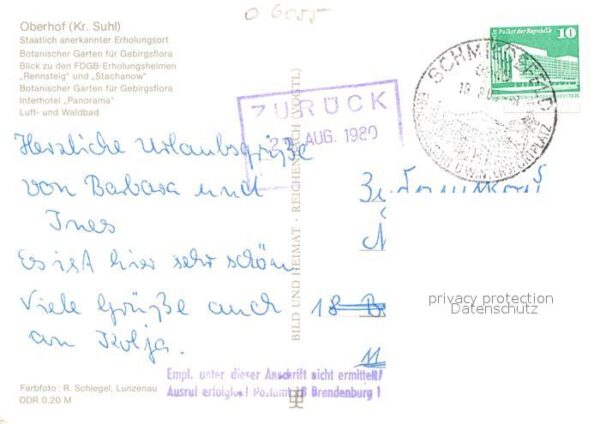 O 6055
Oberhof (Kr. Suhl)
Staatlich anerkannter Erholungsort
Botanischer Garten für Gebirgsflora
Blick zu den FDGB-Erholungsheimen
„Rennsteig" und „Stachanow"
Botanischer Garten für Gebirgsflora
Interhotel „Panorama"
Luft- und Waldbad
Palast der Republik 10
ZURÜCK
AUG. 1980
Herzliche Urlaubsgrüße
von Barbara und
Ines
Es ist hier sehr schön
Viele Grüße auch
an Kolja.
BILD UND HEIMAT · REICHENBACH (VOGTL)
18
privacy protection
Datenschutz
Empf. unter dieser Anschrift nicht ermittelt
Ausruf erfolglos! Postamt 18 Brandenburg 1
Farbfoto: R. Schlegel, Lunzenau
DDR 0,20 M